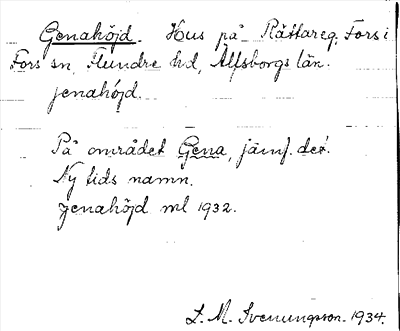 Genahöjd. Hus på Rättareg. Fors i
Fors sn, Flundre hd, Älfsborgs län.
jenahöjd.
På området Gena, jämf. det.
Ny tids namn.
Jenahöjd ml 1932.
L. M. Svenungsson. 1934.